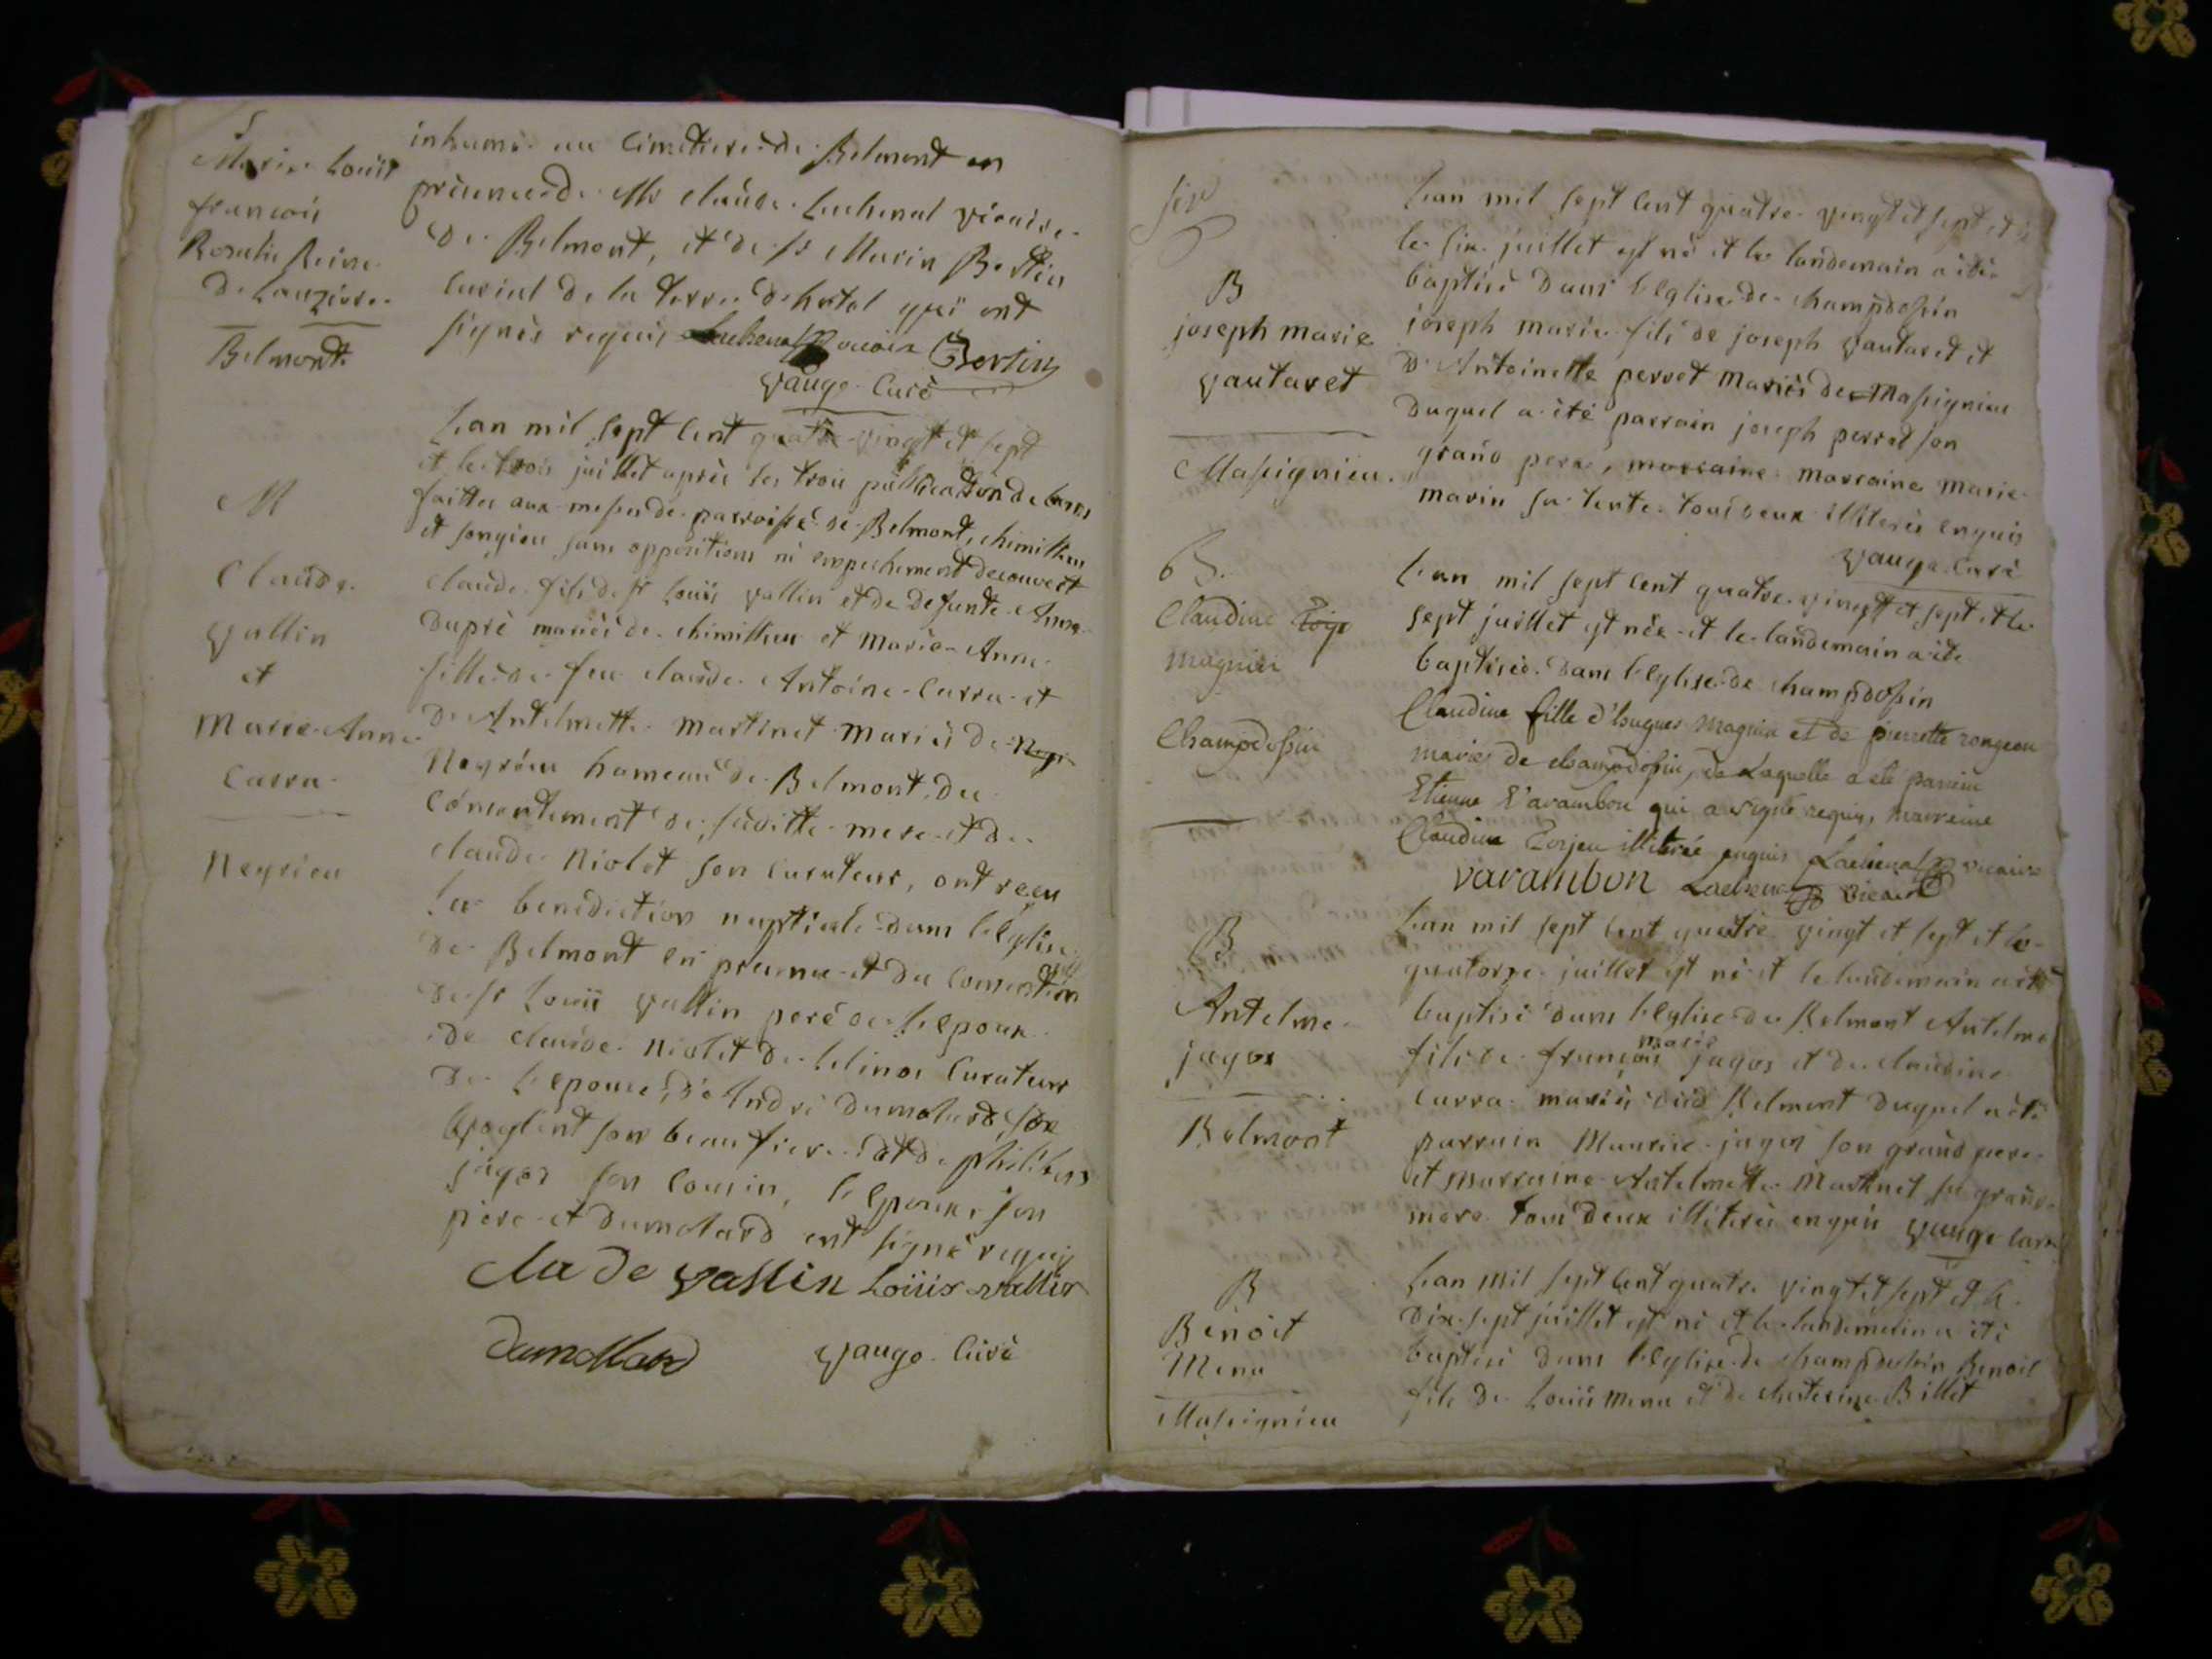 S
Marie Louis
francois
Rosalie Reine
De Lauziere
Belmont
inhumé au cimetiere de Belmont en
présence de Mr claude Luchenal vicaire
De Belmont, et de sr Marin Bertin
curial de la terre
qui ont
signés requis Luchenal vicaire Bertin
vauge curé
M
Claude
vallin
et
Marie-Anne
Carra
Neyrieu
L'an mil sept cent quatre-vingt et sept
et le trois juillet après les trois publication de bans
faittes aux messes de parroisse de Belmont, chimillieu
et songieu sans oppositions ni empechement decouvert
claude fils de sr Louis vallin et de defunte Anne
Dupré mariés de chimillieu et Marie-Anne
fille de feu claude Antoine Carra et
De Antelmette Martinet Mariés de
Neyrieu hameau de Belmont, du
consentement de saditte mere et de
claude Niolet son curateur, ont reçu
la benediction nuptiale dans l'Eglise
De Belmont en presence et du consentem
de sr Louis vallin pere de l'epoux
de claude Niolet de curateur
De l'epouse, d'André dumolard
son beau frere et de philibert
jagos son cousin, l'Epoux, son
père et dumolard ont signé requis
Clade vallin Louis vallin
Dumollard vauge Curé
six
B
joseph marie
vautaret
Massignieu
L'an mil sept cent quatre-vingt et sept et
le six juillet est né et le landemain a été
baptisé dans l'Eglise de champdossin
joseph marie fils de joseph vautaret et
D'Antoinette perret Mariés de Massignieu
Duquel a été parrain joseph perret son
grand pere, marraine marraine marie
marin sa tente tous deux illiterés enquis
vauge curé
B.
Claudine
magnin
Champdossin
L'an mil sept cent quatre-vingt et sept et le
sept juillet est née et le landemain a été
baptisée dans l'Eglise de champdossin
Claudine fille d'hugues Magnin et de pierrette rongeon
mariés de champdossin, de Laquelle a été parrein
Etienne Varambon qui a signé requis, marreine
Claudine illiterée enquis Luchenal vicaire
varambon Luchenal vicaire
B
Antelme
jagos
Belmont
L'an mil sept cent quatre vingt et sept et le
quatorze juillet est né et le landemain a été
baptisé dans l'Eglise de Belmont Antelme
fils de françois marie jagos et de claudine
carra mariés dud Belmont duquel a été
parrain Maurice jagos son grand pere
et marraine Antelmette Martinet sa grand
mere tous deux illiterés enquis vauge curé
B
Benoit
Menu
Massignieu
L'an mil sept cent quatre vingt et sept et le
dix-sept juillet est né et le landemain a été
baptisé dans l'Eglise de champdossin Benoit
fils de Louis menu et de chaterine Billet